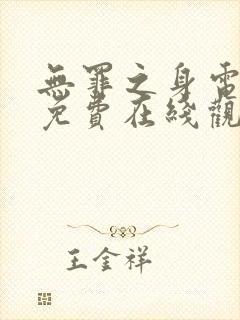 無罪之身電
免費在綫觀
王金祥